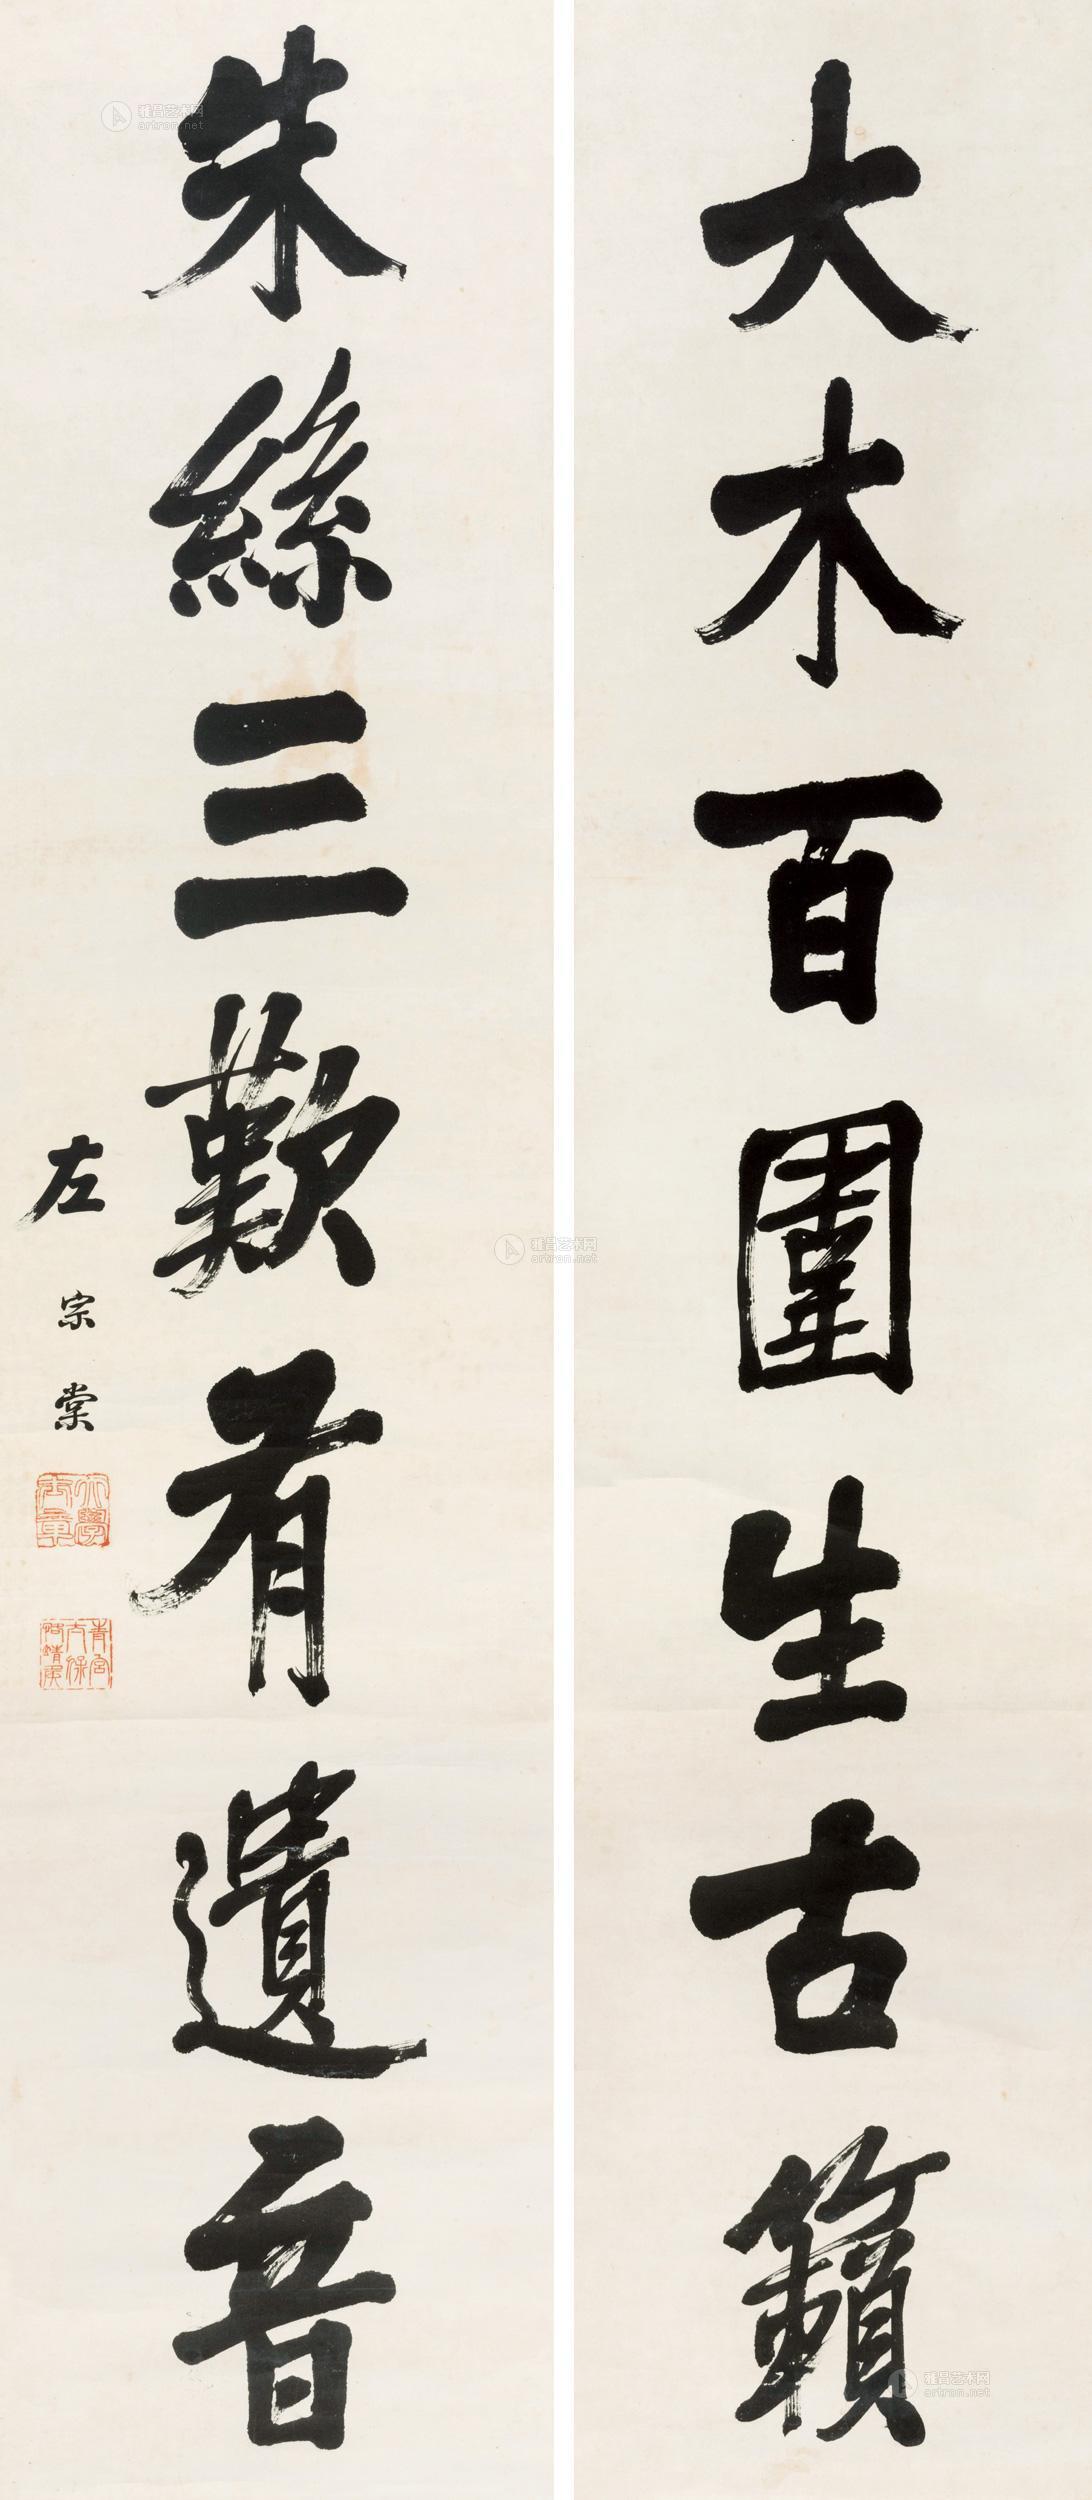 大木百圍生古籟
朱絲三歎有遺音
左宗棠
大學士章
青宮太保恪靖侯
雅昌艺术网
artron.net
雅昌艺术网
artron.net
雅昌艺术网
artron.net